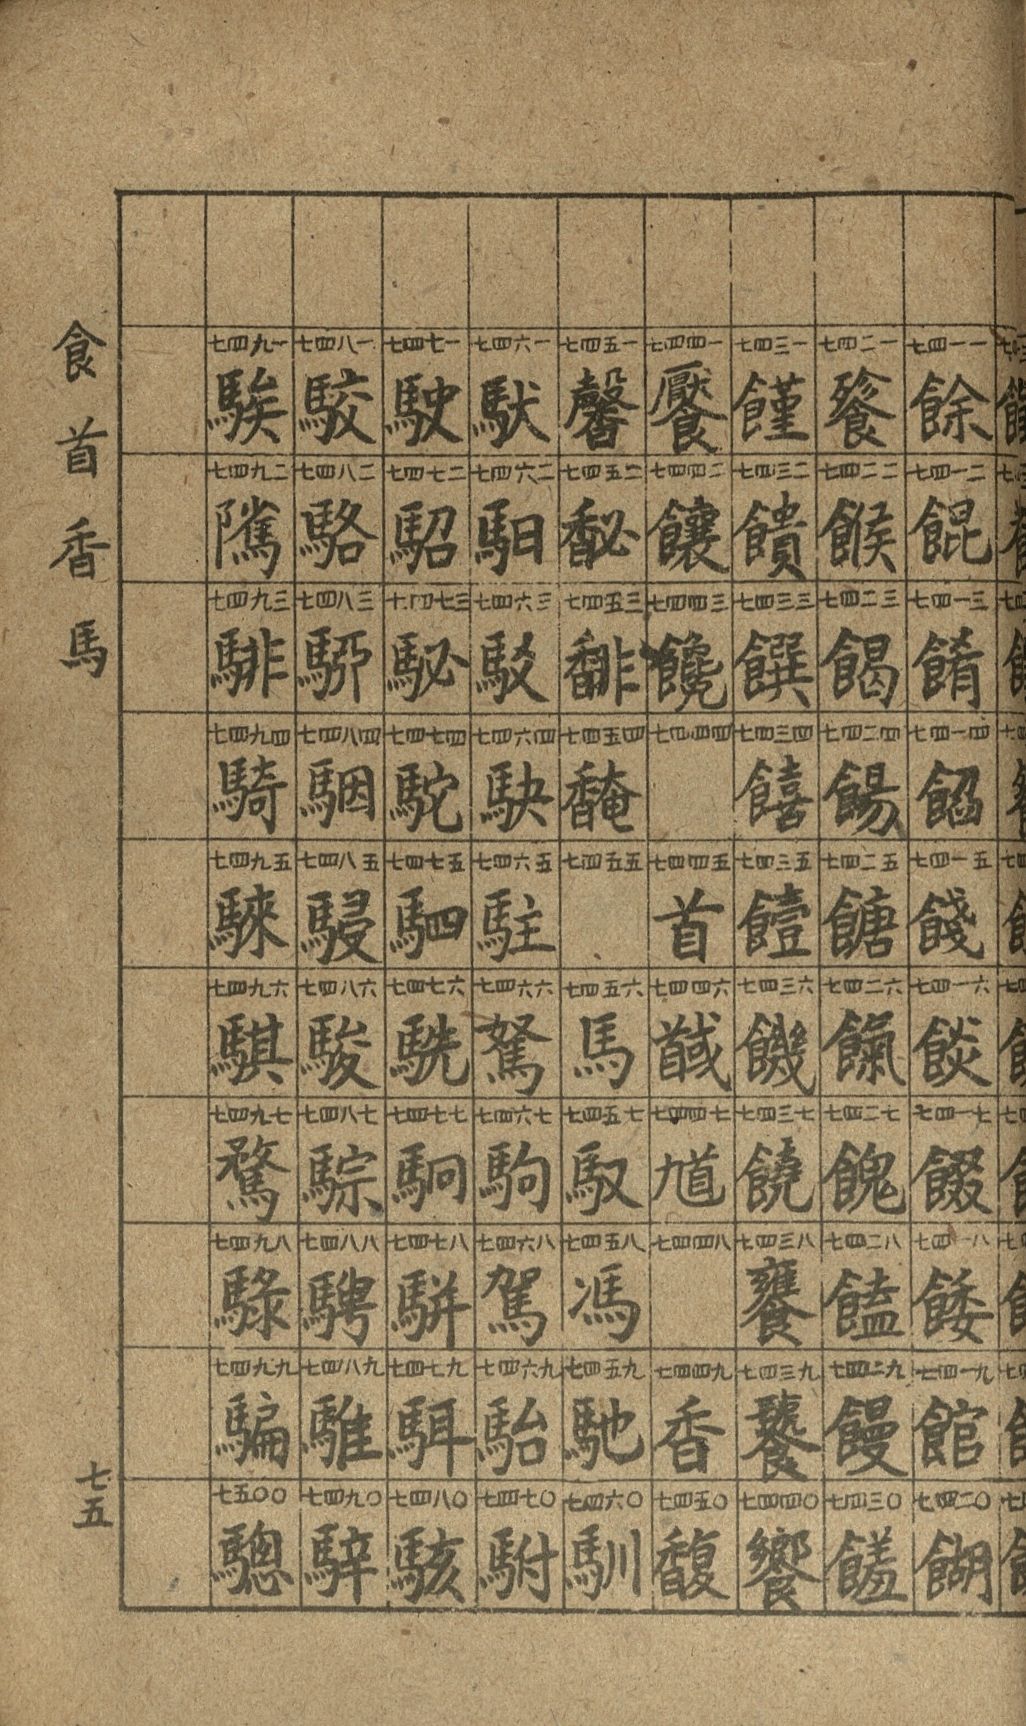 七四一一
餘
七四一二
餛
七四一三
餚
七四一四
餡
七四一五
餞
七四一六
餤
七四一七
餟
七四一八
餧
七四一九
館
七四二〇
餬
七四二一
餮
七四二二
餱
七四二三
餲
七四二四
餳
七四二五
餹
七四二六
餼
七四二七
餽
七四二八
饁
七四二九
饅
七四三〇
饈
七四三一
饉
七四三二
饋
七四三三
饌
七四三四
饎
七四三五
饐
七四三六
饑
七四三七
饒
七四三八
饔
七四三九
饕
七四四〇
饗
七四四一
饜
七四四二
饟
七四四三
饞
七四四四
七四四五
首
七四四六
馘
七四四七
馗
七四四八
七四四九
香
七四五〇
馥
七四五一
馨
七四五二
馝
七四五三
馡
七四五四
馣
七四五五
七四五六
馬
七四五七
馭
七四五八
馮
七四五九
馳
七四六〇
馴
七四六一
馱
七四六二
馹
七四六三
駁
七四六四
駃
七四六五
駐
七四六六
駑
七四六七
駒
七四六八
駕
七四六九
駘
七四七〇
駙
七四七一
駛
七四七二
駋
七四七三
駜
七四七四
駝
七四七五
駟
七四七六
駪
七四七七
駉
七四七八
駢
七四七九
駬
七四八〇
駭
七四八一
駮
七四八二
駱
七四八三
七四八四
駰
七四八五
駸
七四八六
駿
七四八七
騌
七四八八
騁
七四八九
騅
七四九〇
騂
七四九一
騃
七四九二
隲
七四九三
騑
七四九四
騎
七四九五
騋
七四九六
騏
七四九七
騖
七四九八
騄
七四九九
騙
七五〇〇
驄
食首香馬
七五